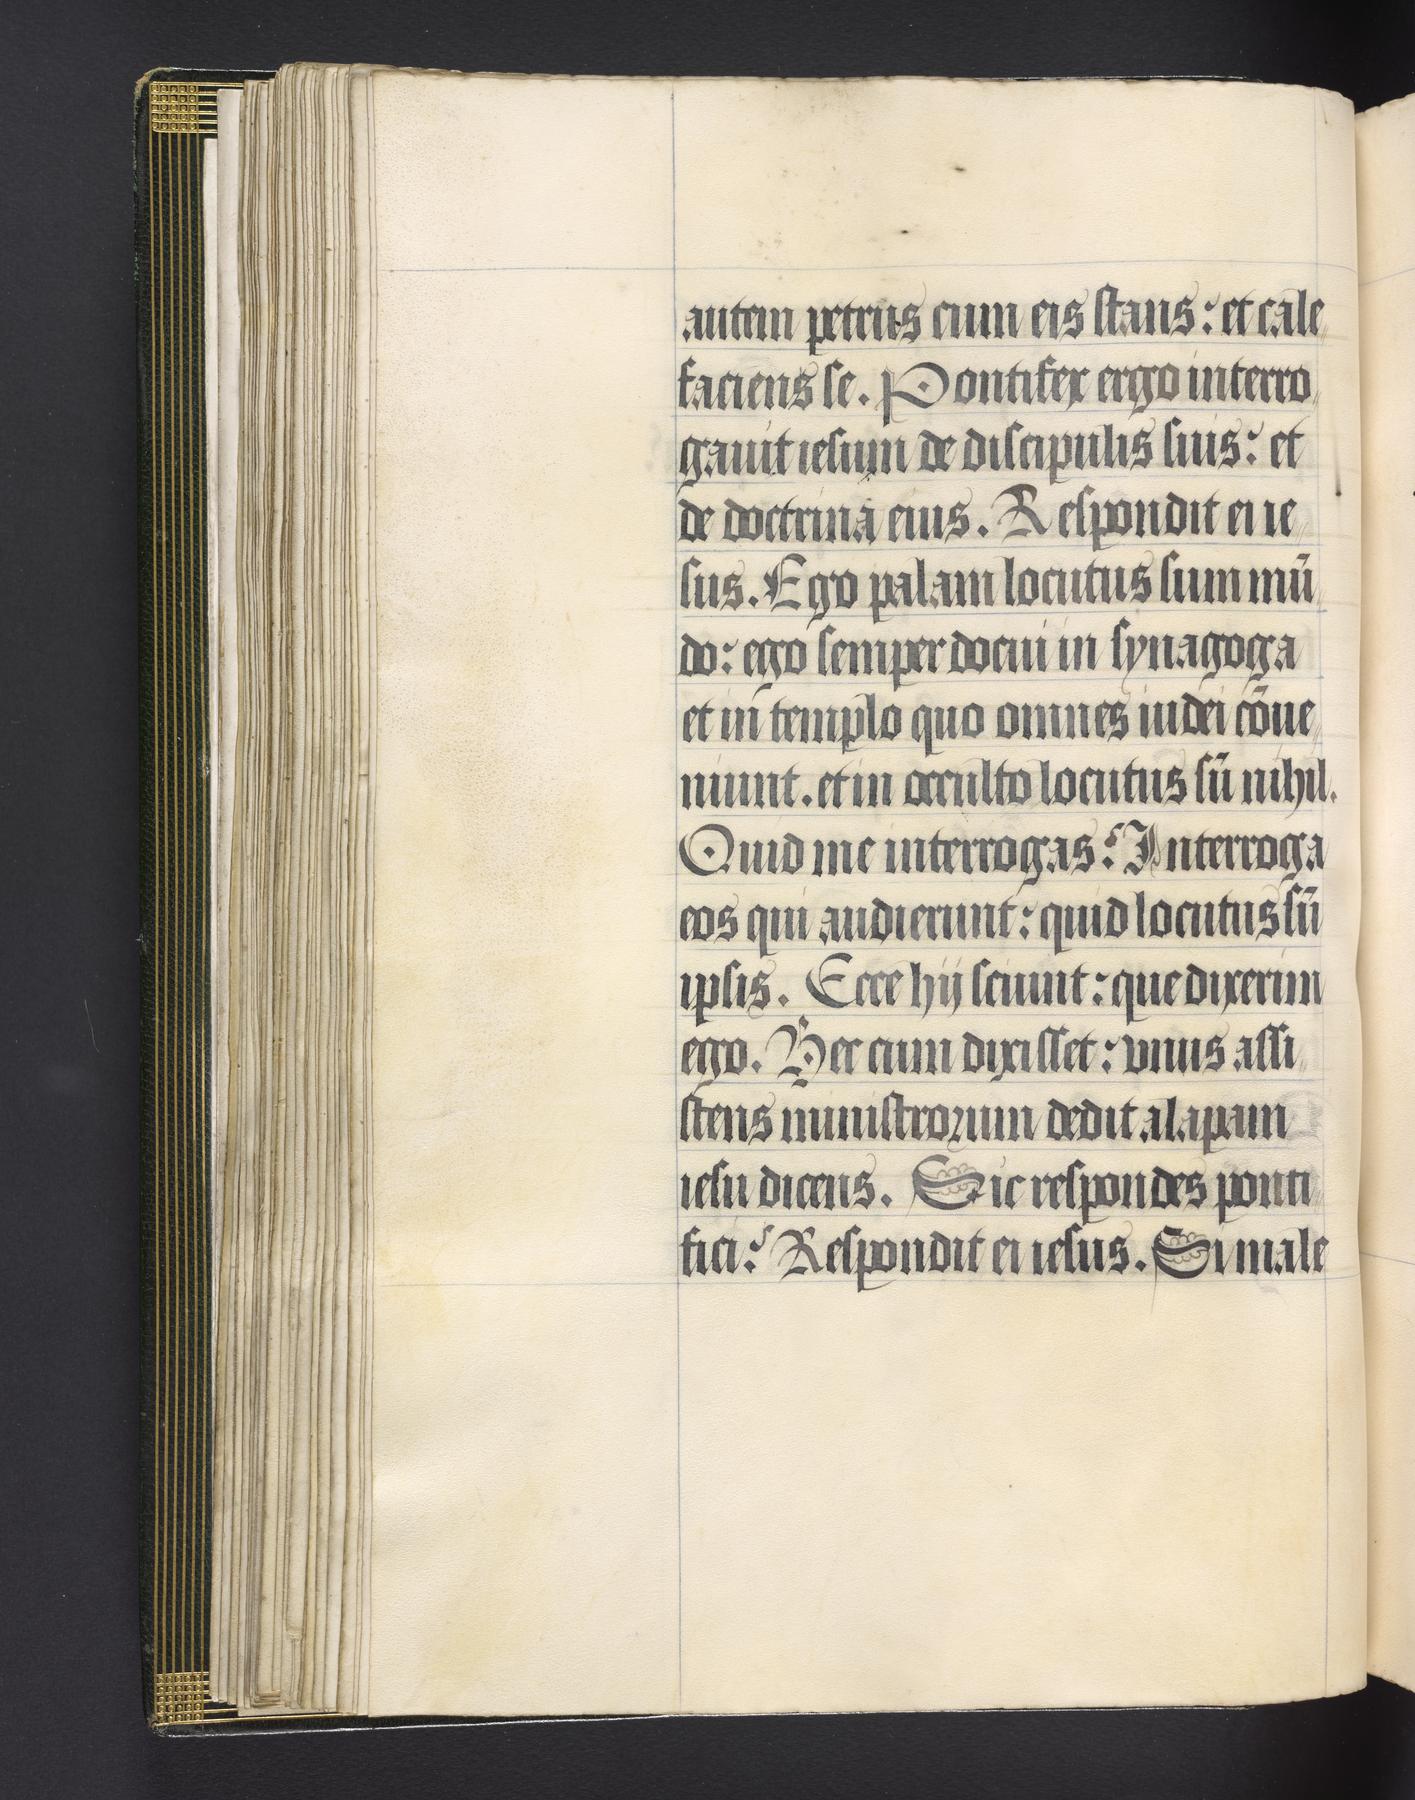 autem petrus cum eis stans: et cale
faciens se. Pontifex ergo interro
gauit iesum de discipulis suis: et
de doctrina eius. Respondit ei ie
sus. Ego palam locutus sum mū
do: ego semper docui in synagoga
et in templo quo omnes iudei cōue
niunt. et in occulto locutus sū nihil.
Quid me interrogas? Interroga
eos qui audierunt: quid locutus sū
ipsis. Ecce hij sciunt: que dixerim
ego. Hec cum dixisset: vnus assi
stens ministrorum dedit alapam
iesu dicens. Sic respondes ponti
fici? Respondit ei iesus. Si male